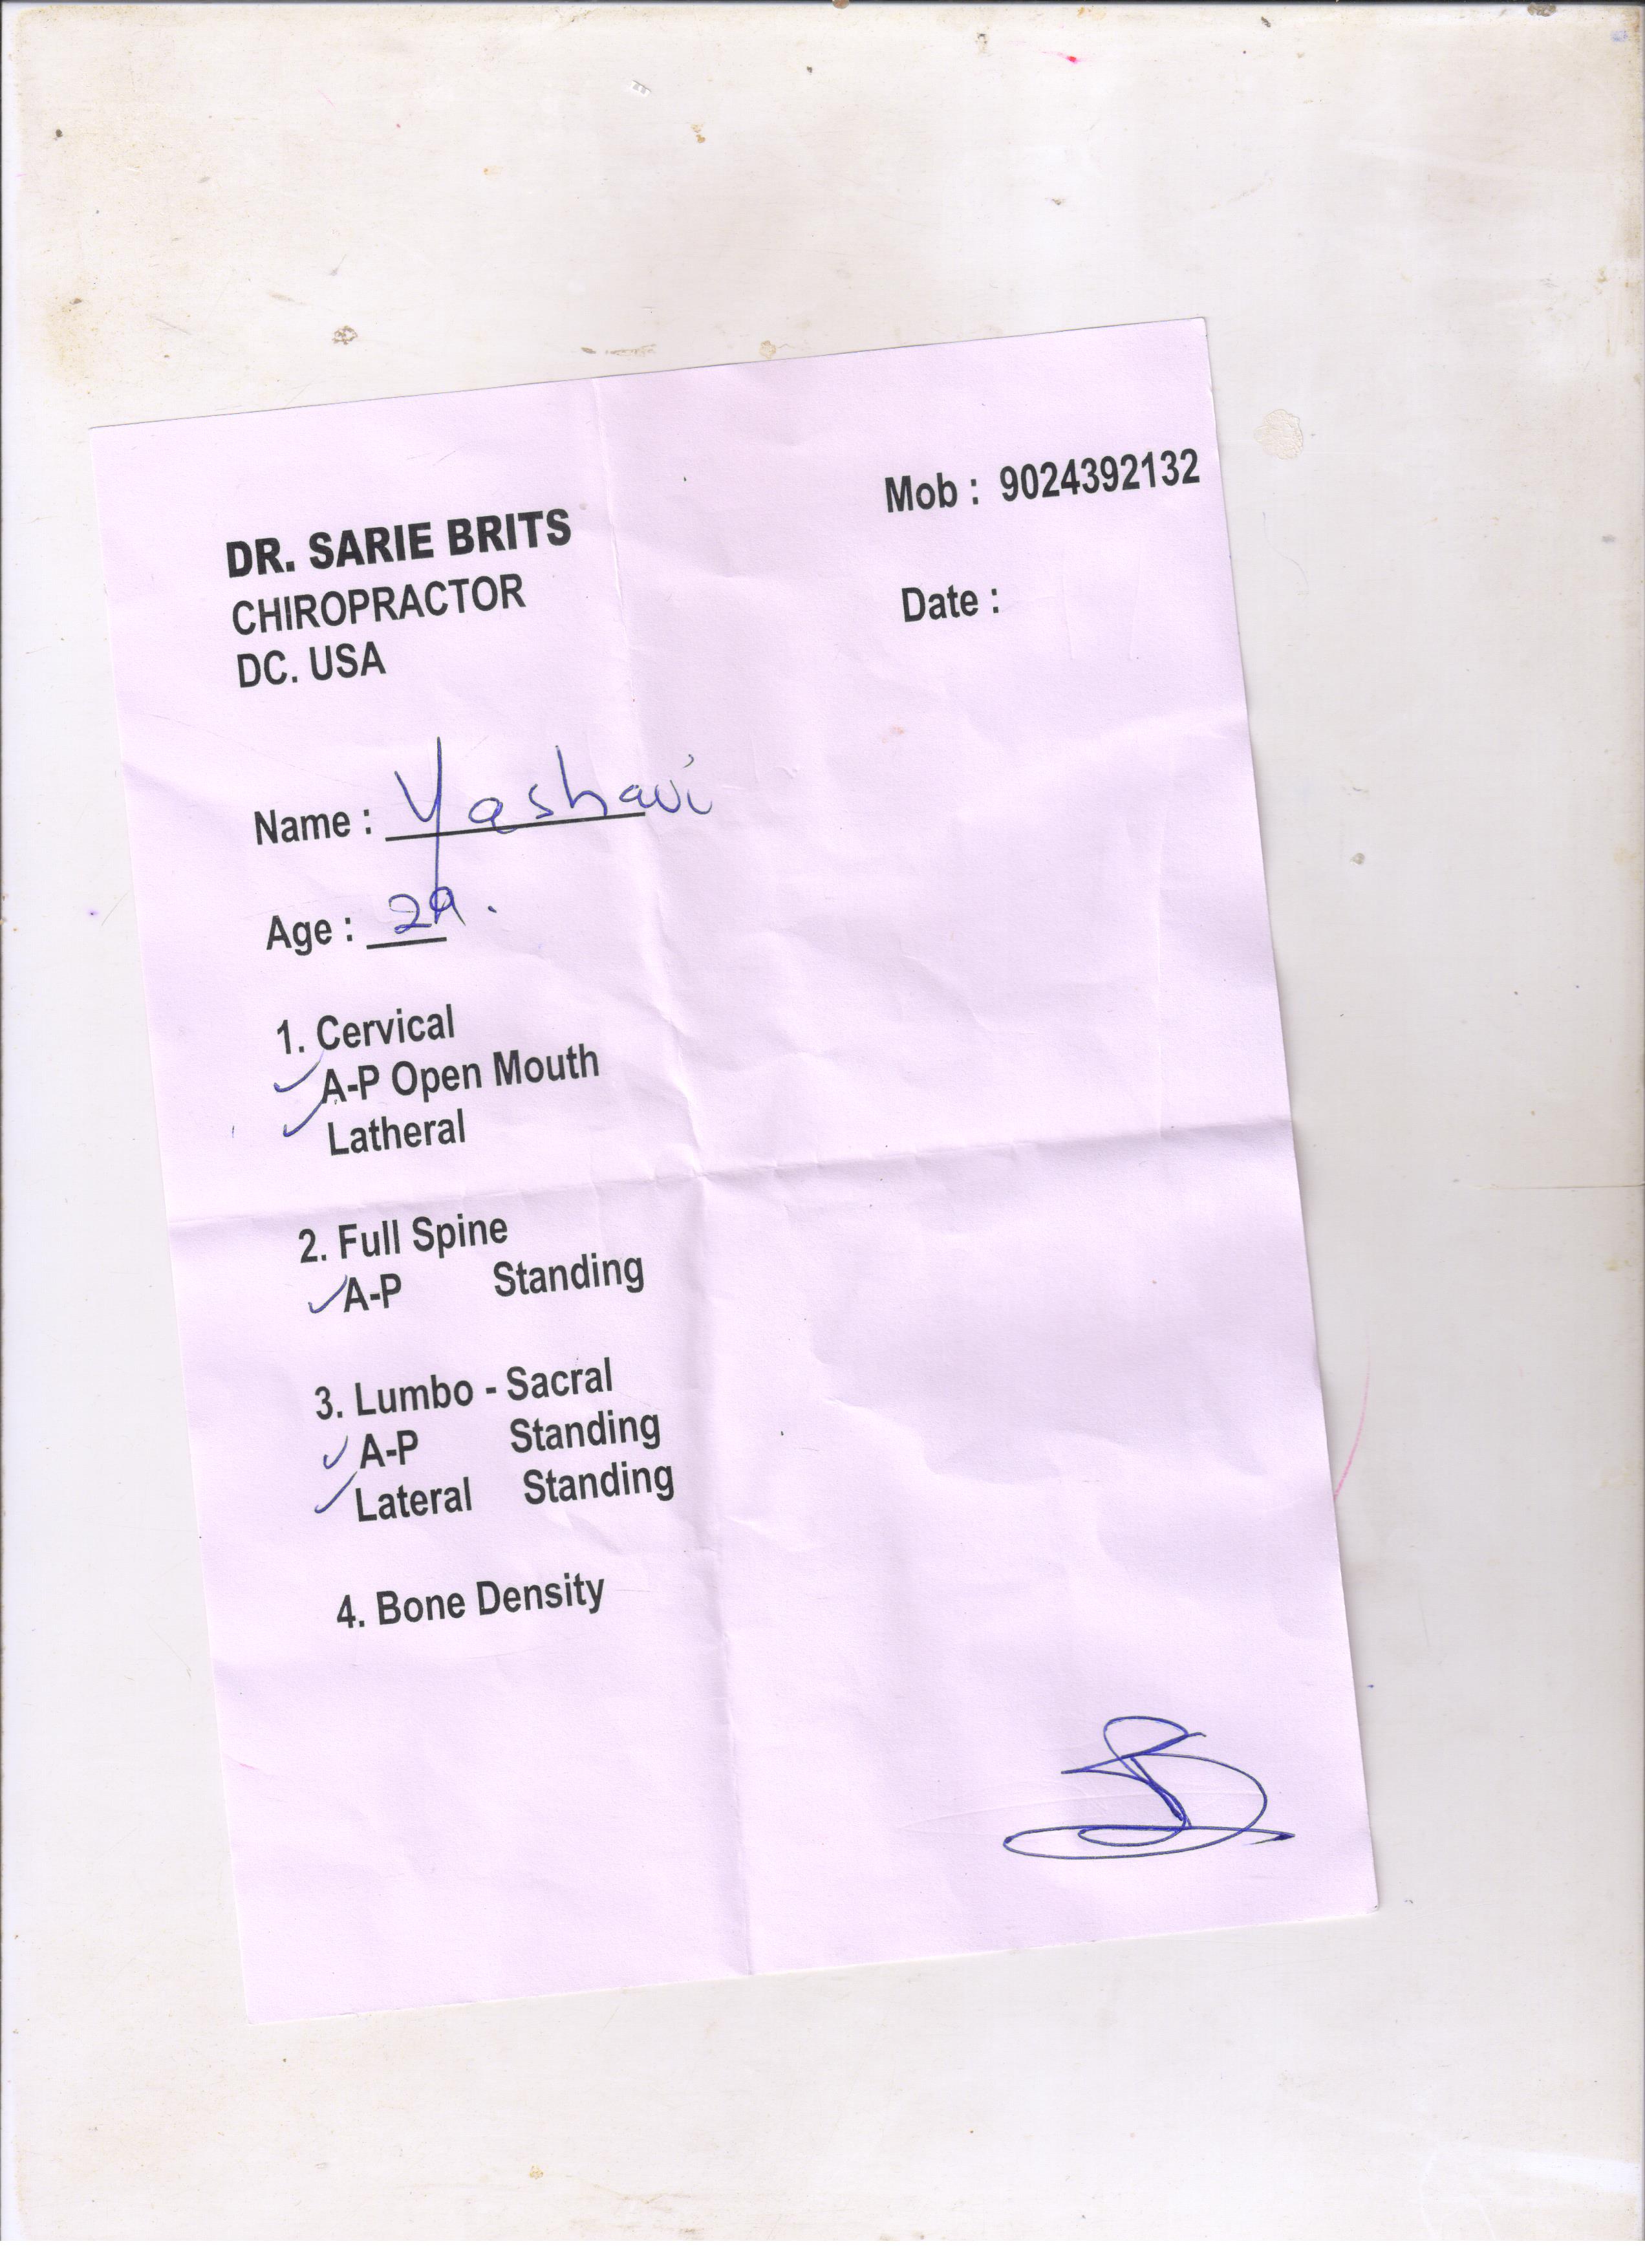 Mob : 9024392132
DR. SARIE BRITS
CHIROPRACTOR
DC. USA
Date :
Name : Yashavi
Age : 29.
1. Cervical
✓ A-P Open Mouth
✓ Latheral
2. Full Spine
✓ A-P Standing
3. Lumbo - Sacral
✓ A-P Standing
✓ Lateral Standing
4. Bone Density